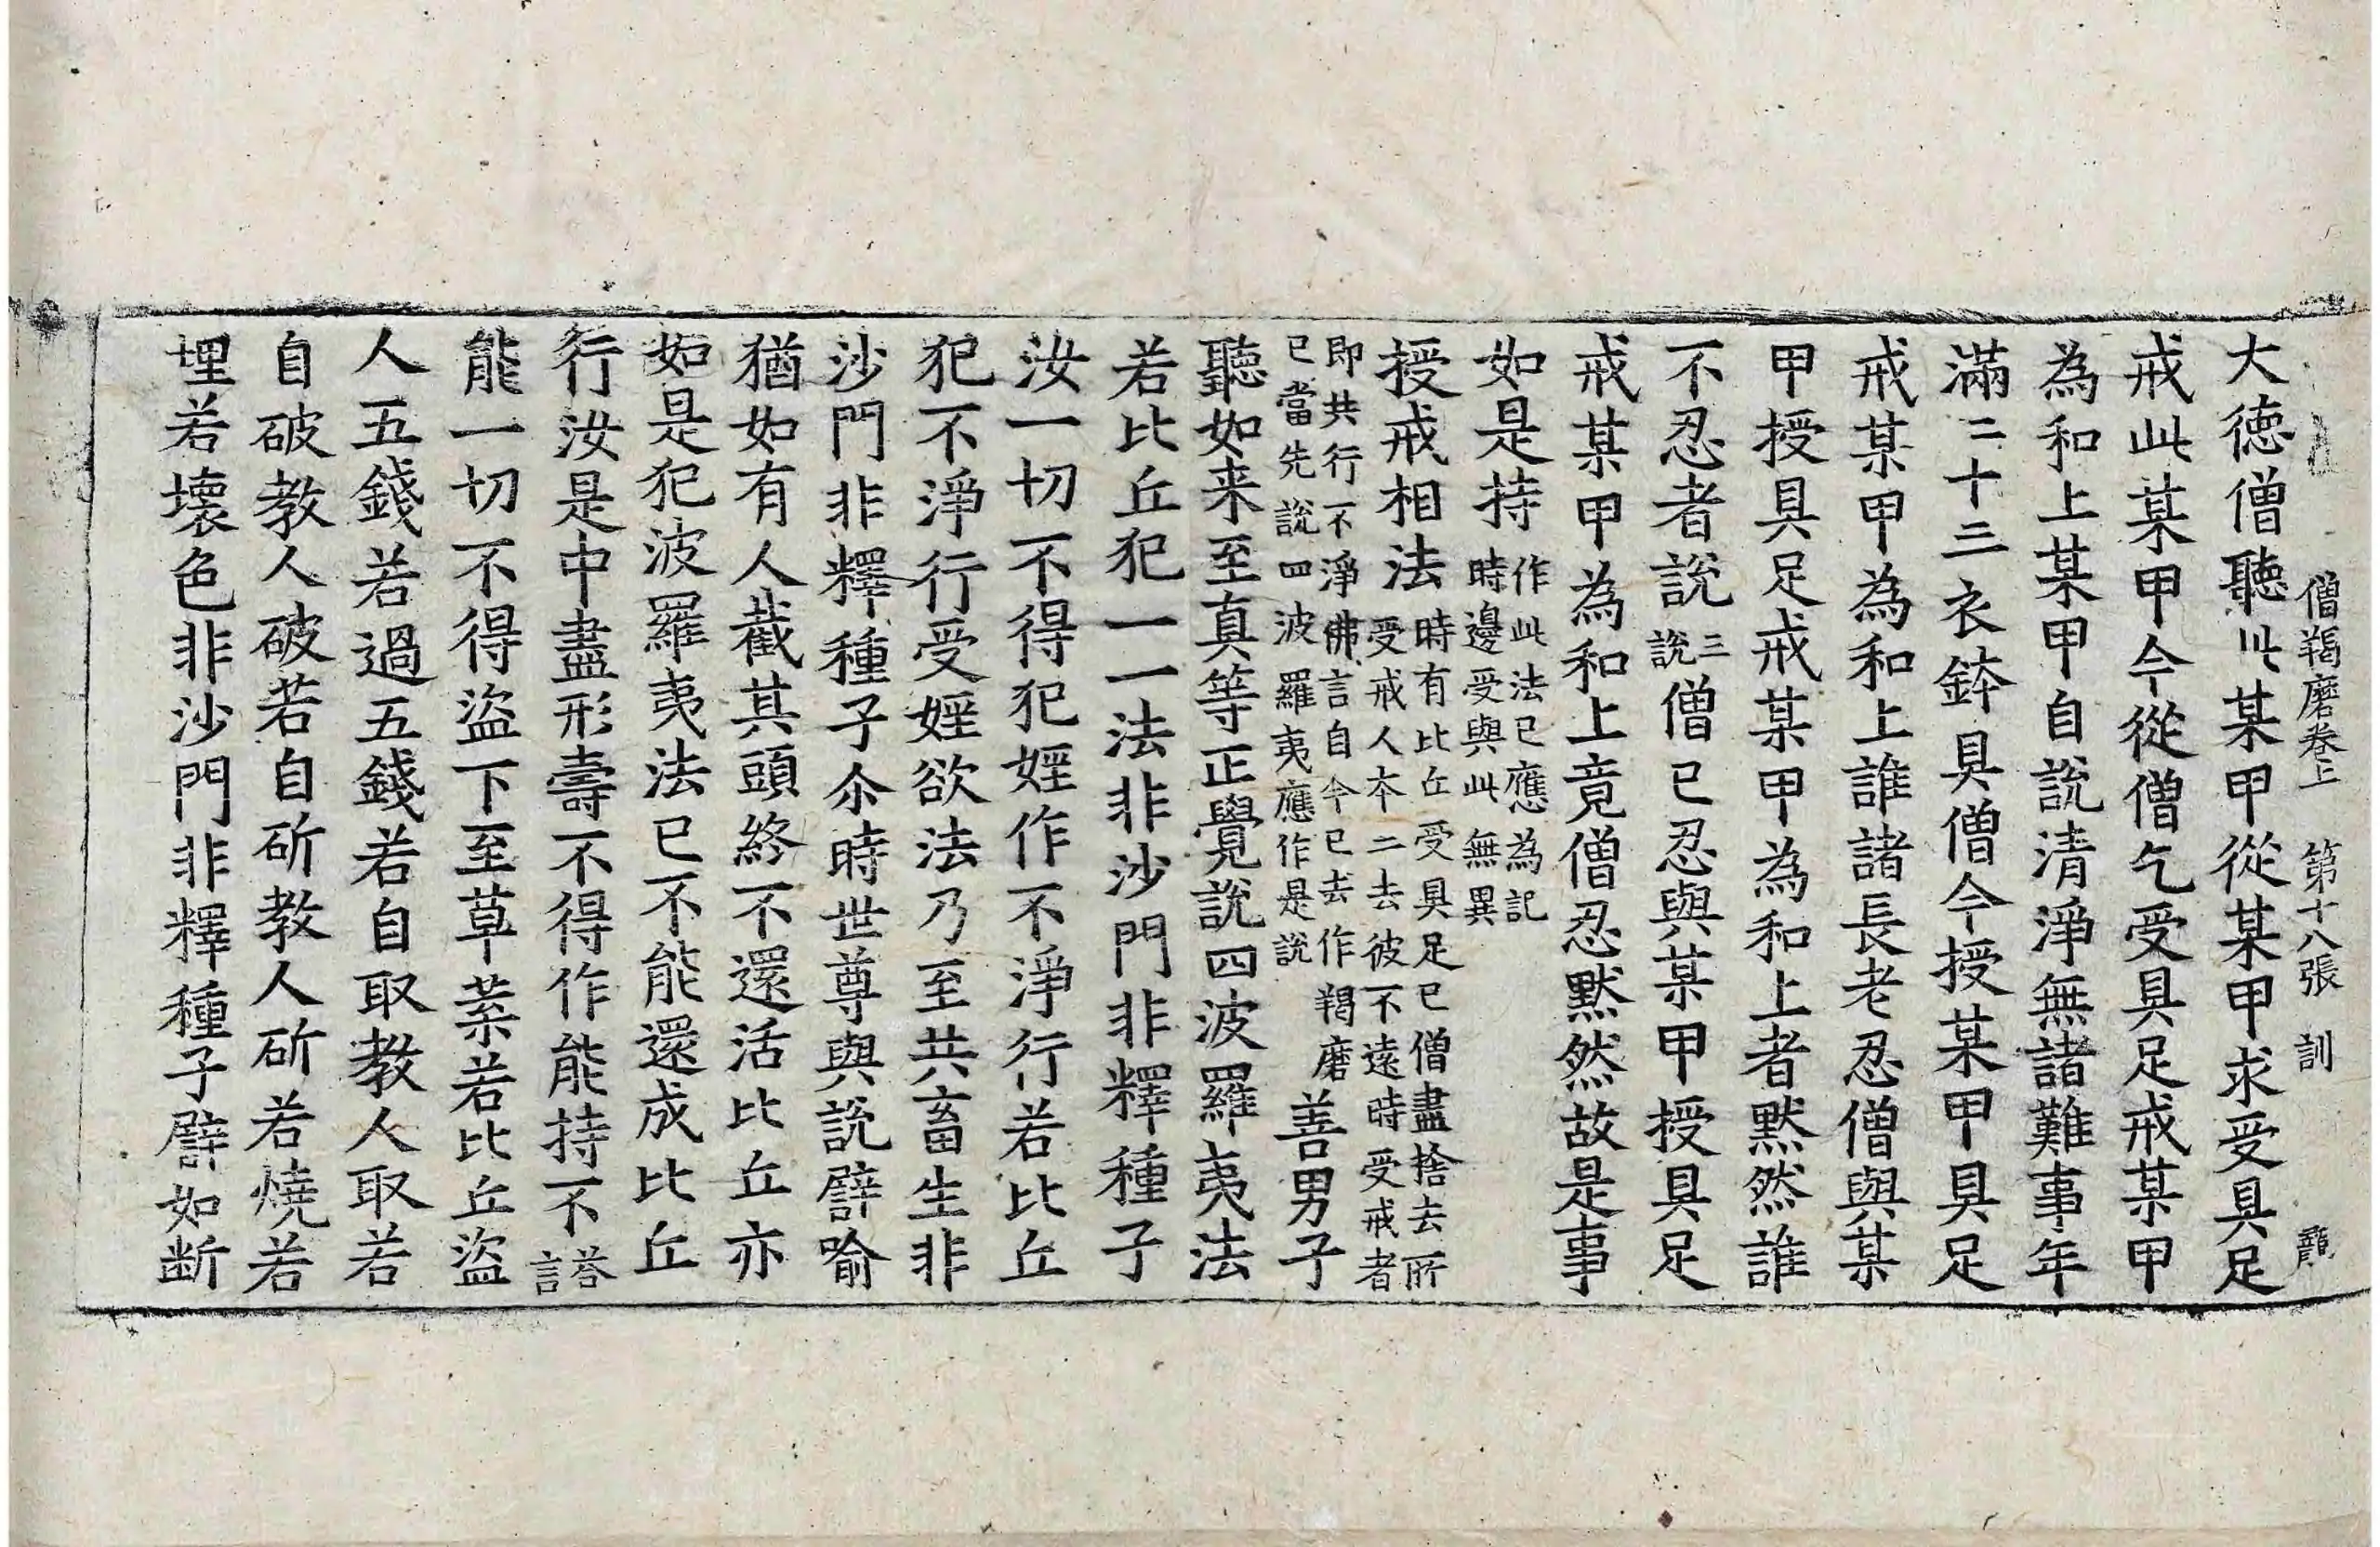 僧羯磨卷上　第十八張　訓
大徳僧聽此某甲從某甲求受具足
戒此某甲今從僧乞受具足戒某甲
為和上某甲自說清淨無諸難事年
滿二十三衣鉢具僧今授某甲具足
戒某甲為和上誰諸長老忍僧與某
甲授具足戒某甲為和上者默然誰
不忍者說三說僧已忍與某甲授具足
戒某甲為和上竟僧忍默然故是事
如是持作此法已應為記時邊受與此無異
授戒相法時有比丘受具足已僧盡捨去所受戒人本二去彼不遠時受戒者
即共行不淨佛言自今已去作羯磨已當先說四波羅夷應作是說善男子
聽如来至真等正覺說四波羅夷法
若比丘犯一一法非沙門非釋種子
汝一切不得犯婬作不淨行若比丘
犯不淨行受婬欲法乃至共畜生非
沙門非釋種子尒時世尊與說譬喻
猶如有人截其頭終不還活比丘亦
如是犯波羅夷法已不能還成比丘
行汝是中盡形壽不得作能持不荅言
能一切不得盜下至草葉若比丘盜
人五錢若過五錢若自取教人取若
自破教人破若自斫教人斫若燒若
埋若壞色非沙門非釋種子譬如断